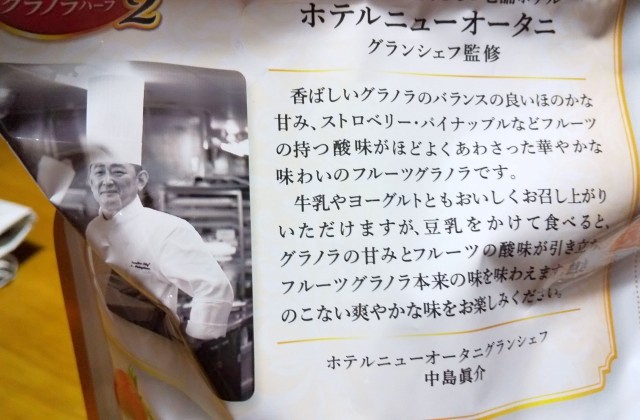 グラノラハーフ
2
ホテルニューオータニ
グランシェフ監修
香ばしいグラノラのバランスの良いほのかな
甘み、ストロベリー・パイナップルなどフルーツ
の持つ酸味がほどよくあわさった華やかな
味わいのフルーツグラノラです。
牛乳やヨーグルトともおいしくお召し上がり
いただけますが、豆乳をかけて食べると、
グラノラの甘みとフルーツの酸味が引き立ち、
フルーツグラノラ本来の味を味わえます。
のこない爽やかな味をお楽しみください。
ホテルニューオータニグランシェフ
中島眞介